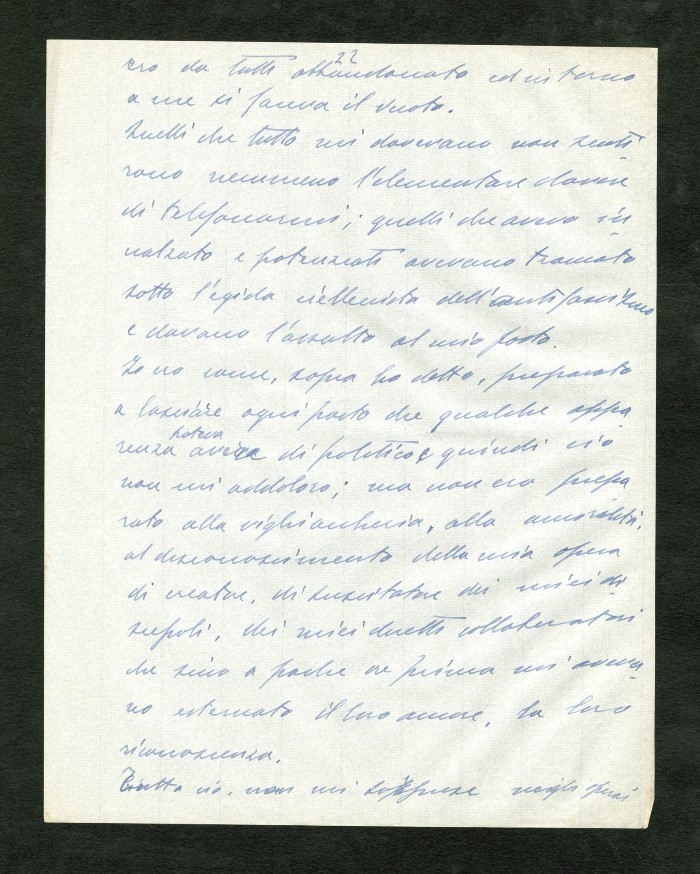 22
ero da tutti abbandonato ed intorno
a me si faceva il vuoto.
Quelli che tutto mi dovevano non senti
rono nemmeno l'elementare dovere
di telefonarmi; quelli che avevo in
nalzato e potenziati avevano tramato
sotto l'egida ciellenista dell'antifascismo
e davano l'assalto al mio posto.
Io ero come, sopra ho detto, preparato
a lasciare ogni posto che qualche appa
renza poteva avere di politico e quindi ciò
non mi addolorò; ma non ero prepa
rato alla vigliaccheria, alla amoralità,
al disconoscimento della mia opera
di creatore, di suscitatore dei miei di
scepoli, dei miei diretti collaboratori
che sino a poche ore prima mi aveva
no esternato il loro amore, la loro
riconoscenza.
Tutto ciò non mi sospinse negli pursi